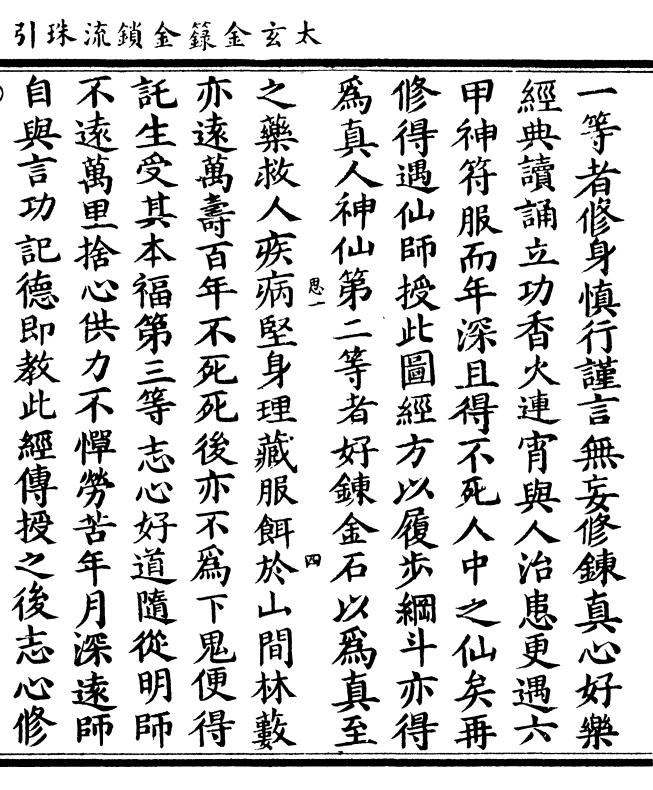 太玄金籙金鎖流珠引
一等者修身慎行謹言無妄修鍊真心好樂
經典讀誦立功香火連宵與人治患更遇六
甲神符服而年深且得不死人中之仙矣再
修得遇仙師授此圖經方以履步綱斗亦得
為真人神仙第二等者好鍊金石以為真至
思一
四
之藥救人疾病堅身理藏服餌於山間林藪
亦遠萬壽百年不死死後亦不為下鬼便得
託生受其本福第三等志心好道隨從明師
不遠萬里捨心供力不憚勞苦年月深遠師
自與言功記德即教此經傳授之後志心修